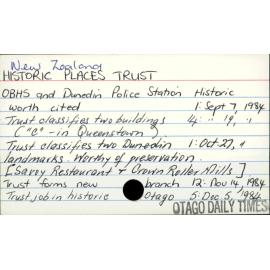 New Zealand
HISTORIC PLACES TRUST
OBHS and Dunedin Police Station Historic
worth cited 1: Sept 7, 1984
Trust classifies two buildings 4: " 19, "
("C" - in Queenstown)
Trust classifies two Dunedin 1: Oct 27, "
landmarks. Worthy of preservation.
[Savoy Restaurant & Crown Roller Mills]
Trust forms new branch 12: Nov 14, 1984
Trust job in historic Otago 5: Dec 5, 1984
OTAGO DAILY TIMES